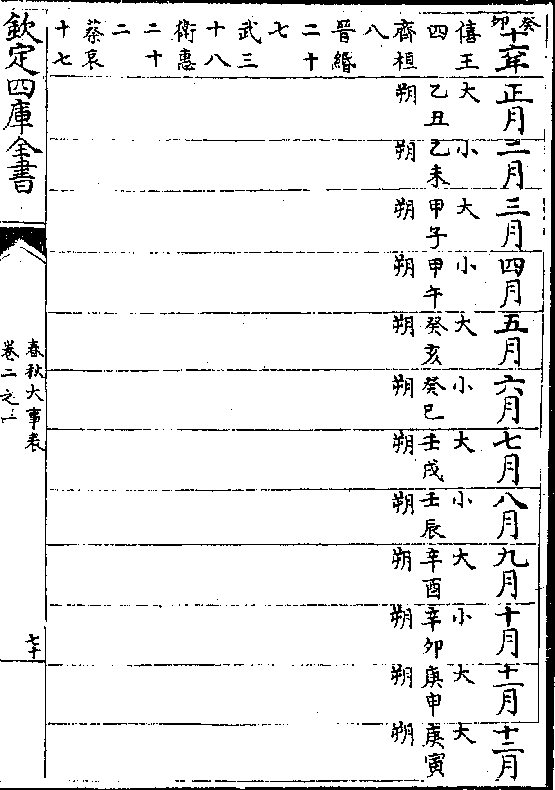 癸卯十六年 正月 二月 三月 四月 五月 六月 七月 八月 九月 十月 十一月 十二月
僖王 大 小 大 小 大 小 大 小 大 小 大 大
四 乙丑 乙未 甲子 甲午 癸亥 癸巳 壬戌 壬辰 辛酉 辛卯 庚申 庚寅
齊桓 朔 朔 朔 朔 朔 朔 朔 朔 朔 朔 朔 朔
八
晉緡
二十
七
武三
十八
衛惠
二十
二
蔡哀
十七
欽定四庫全書
春秋大事表
卷二之一
七十